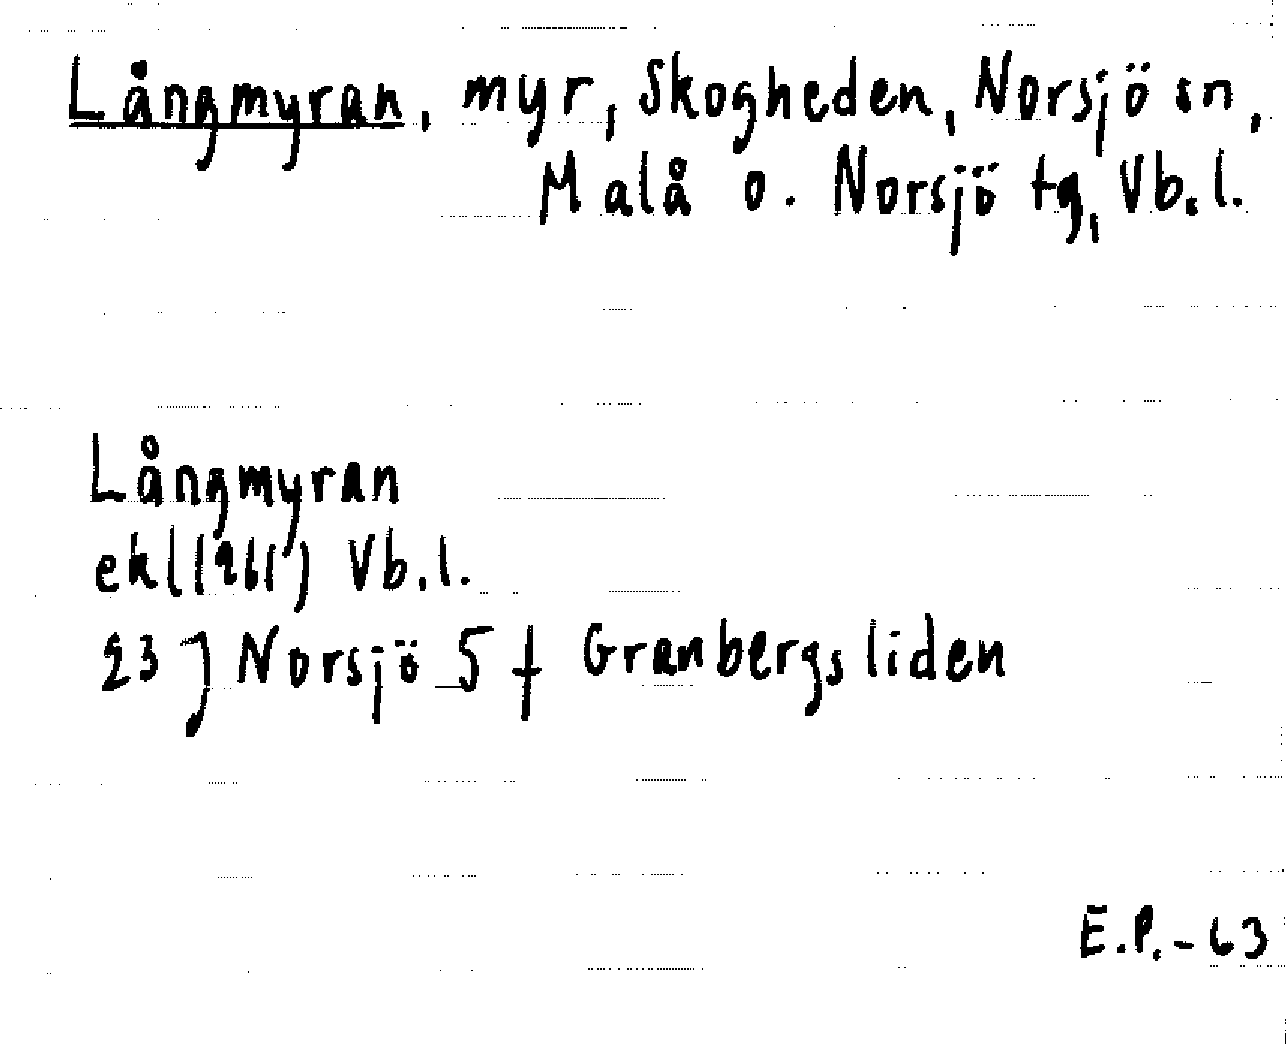 Långmyran, myr, Skogheden, Norsjö sn,
Malå o. Norsjö tg, Vb.l.
Långmyran
ekl (1961) Vb.l.
23 J Norsjö 5 f Granbergsliden
E.P.-63